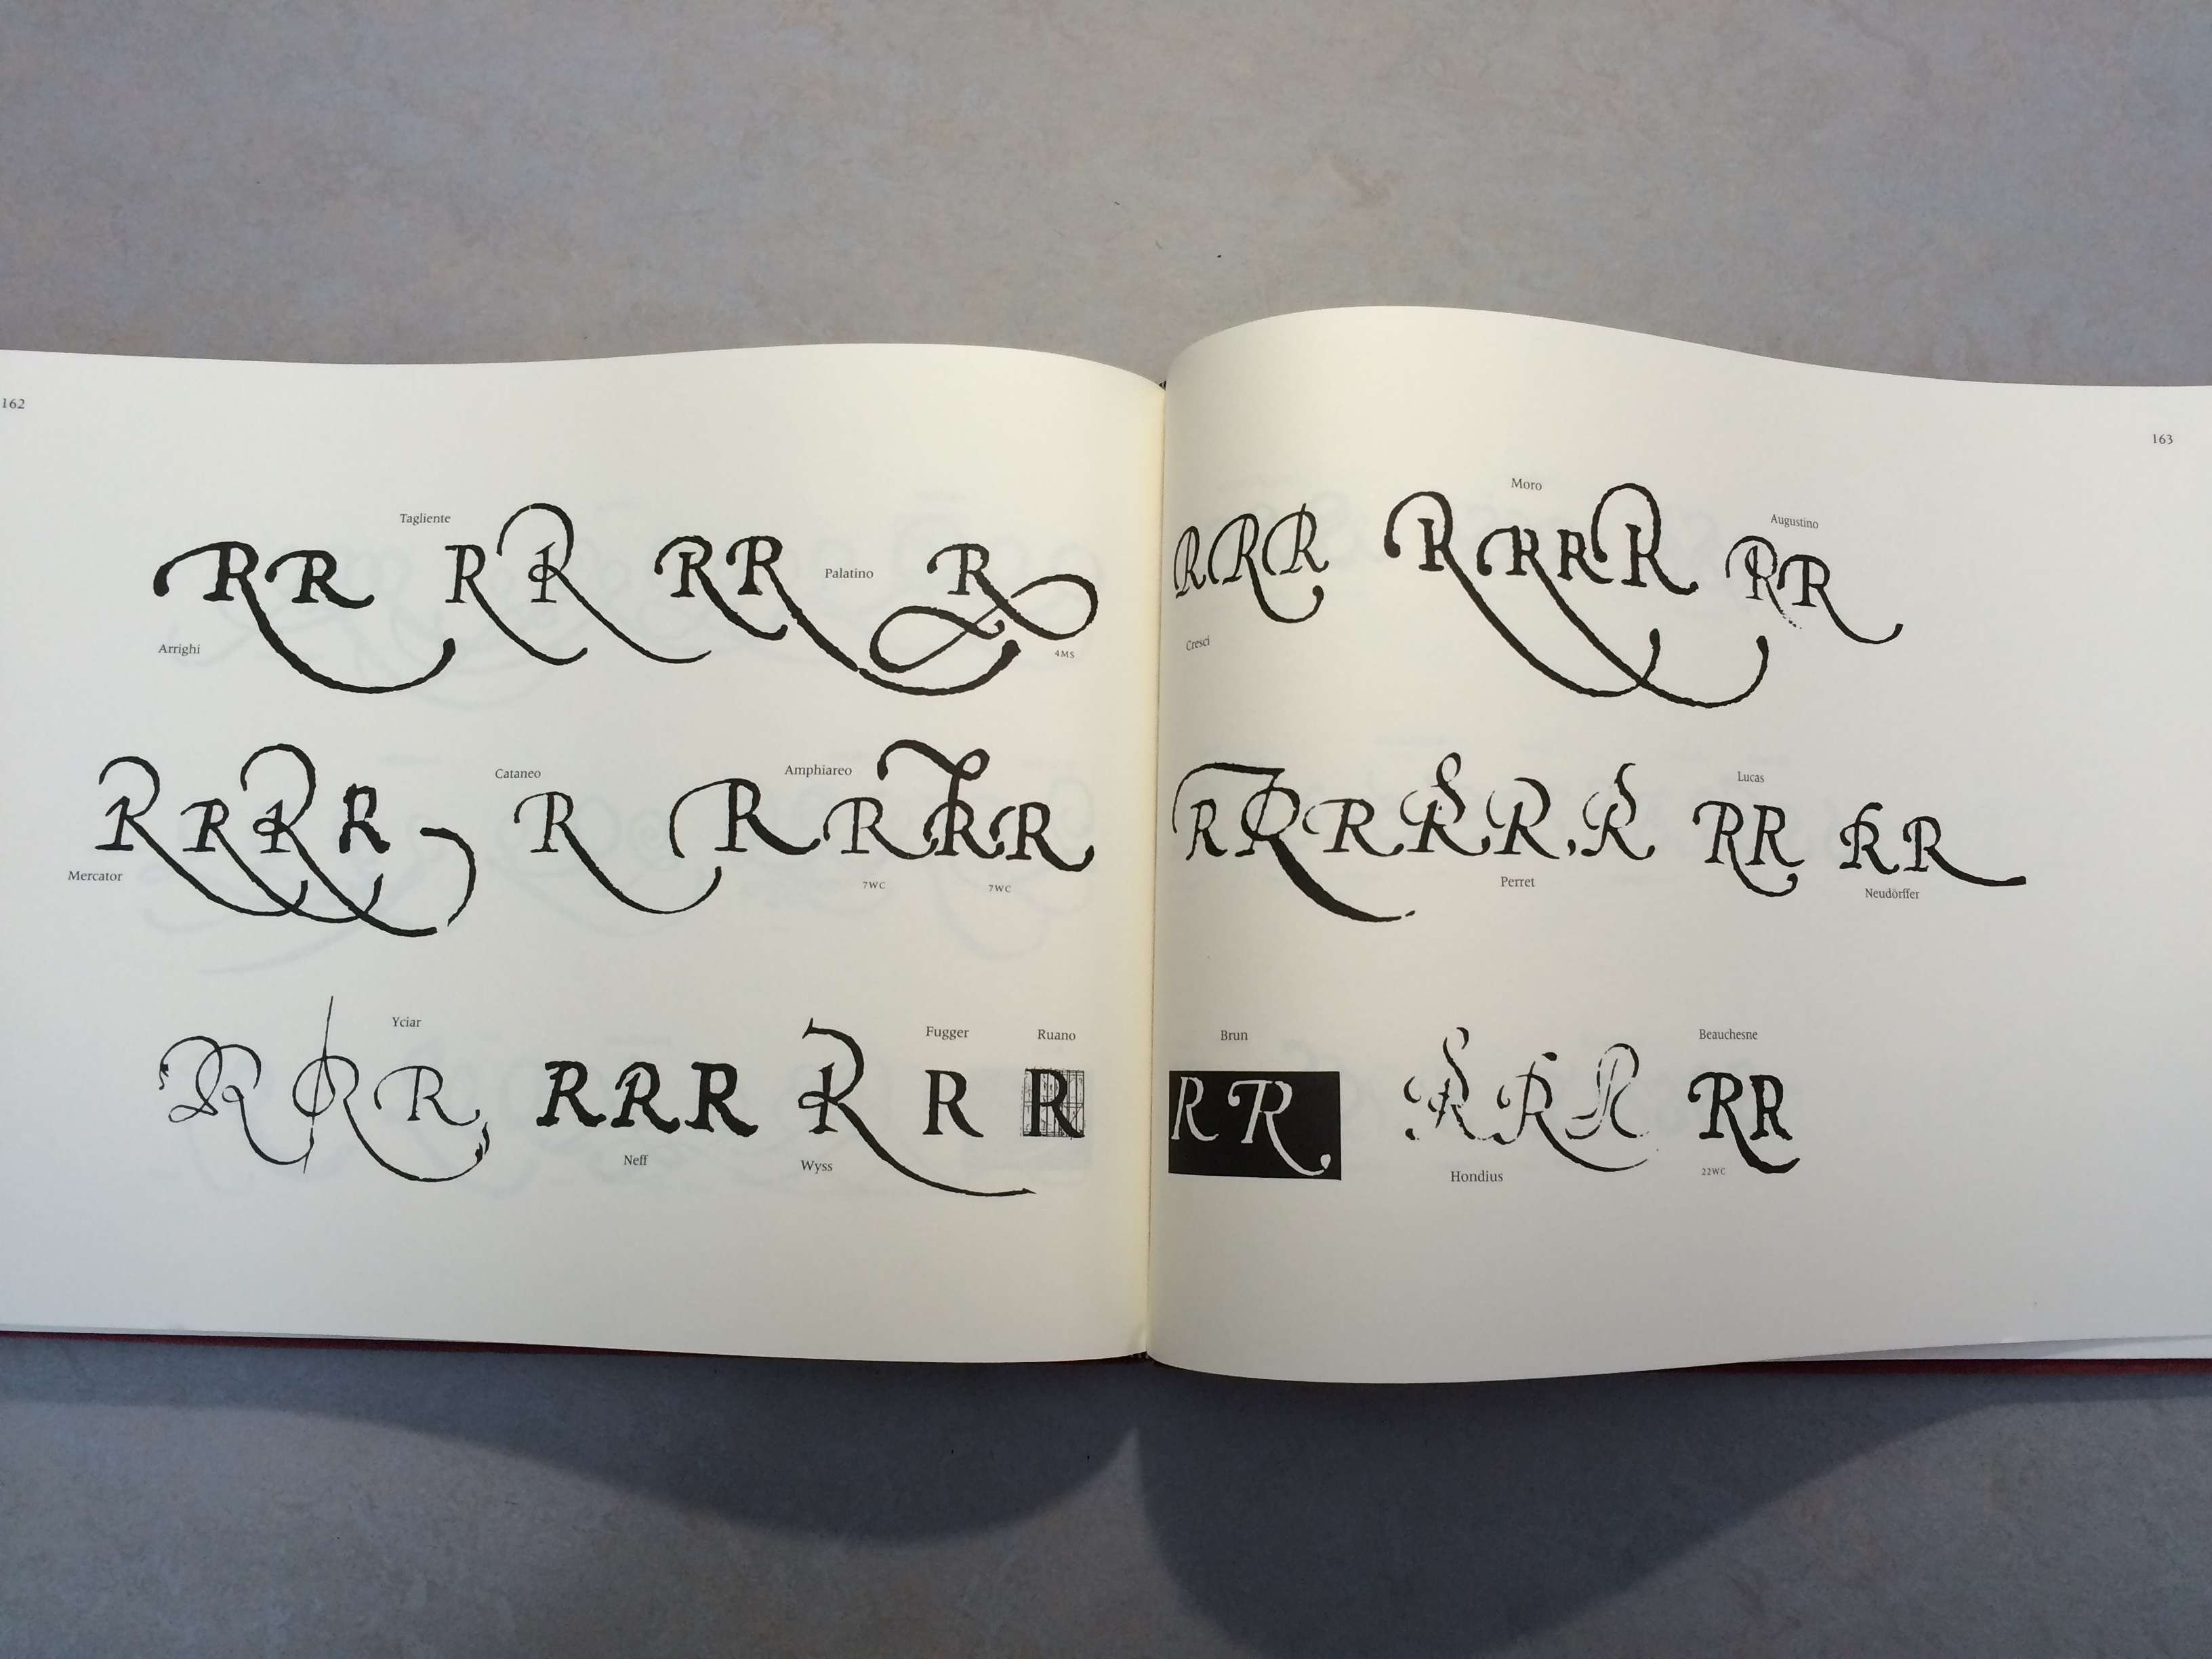 162
Tagliente
RR RR RR Palatino R
Arrighi
4MS
Cataneo Amphiareo
RRRR R RRRR
Mercator
7WC 7WC
Yciar Fugger Ruano
RRR RRR R R R
Neff Wyss
163
Moro
Augustino
RRR RRRR RR
Cresci
Lucas
RRRRRR RR RR
Perret Neudörffer
Brun Beauchesne
RR RRR RR
Hondius 22WC